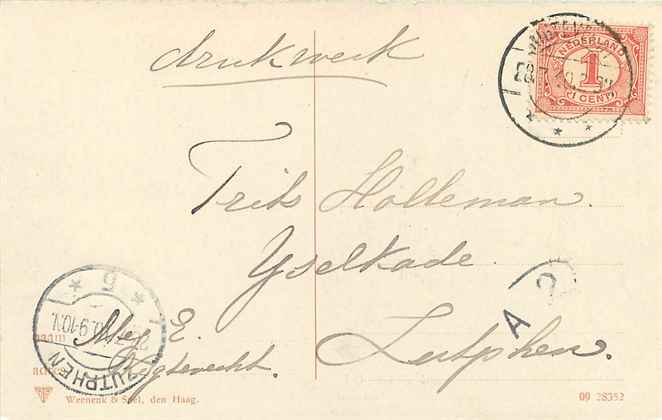 drukwerk
NEDERLAND
1
1 CENT
Frits Holleman.
Yselkade.
Zutphen.
A 2
ZUTPHEN
6
9-10N.
naam
E.
adres
Wernenk & Snel, den Haag.
09 28352